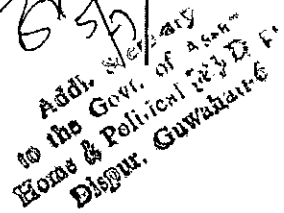 Addl. Secretary
to the Govt. of Assam
Home & Political Deptt.
Dispur, Guwahati-6